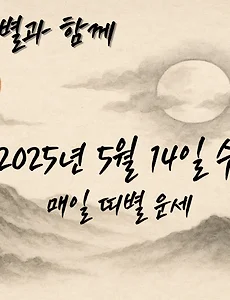 별과 함께
2025년 5월 14일 수
매일 띠별 운세